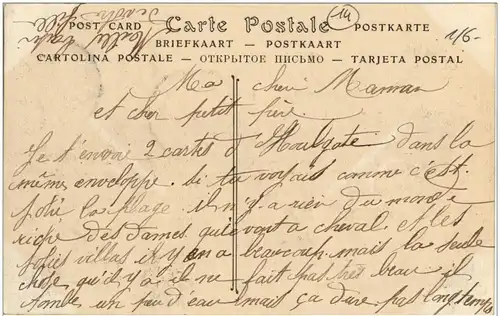 POST CARD Carte Postale POSTKARTE
14
1/6-
BRIEFKAART - POSTKAART
CARTOLINA POSTALE - ОТКРЫТОЕ ПИСЬМО - TARJETA POSTAL
Ma cheri Maman
et cher petit frère.
Je t'envoir 2 cartes d dans la
même enveloppe. si tu voyais comme c'est
jolie la plage il n'y a rien du monde
riche des Dames qui vont a cheval et les
jolis villas il y en a beaucoup mais la seule
chose qu'il y a il ne fait pas très beau il
tombe un peu d'eau mais ça dure pas longtemps